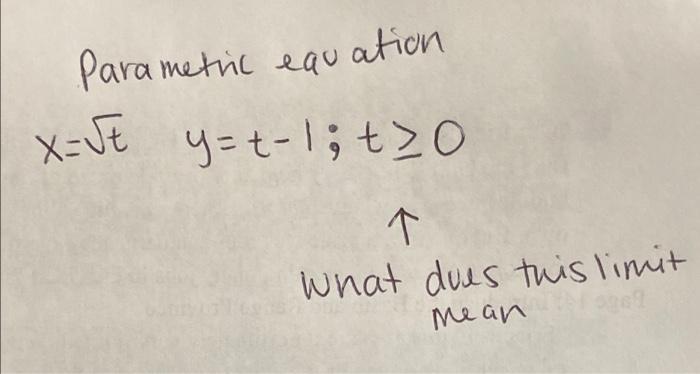 Parametric equation
x=√t y=t-1; t≥0
↑
What does this limit
mean